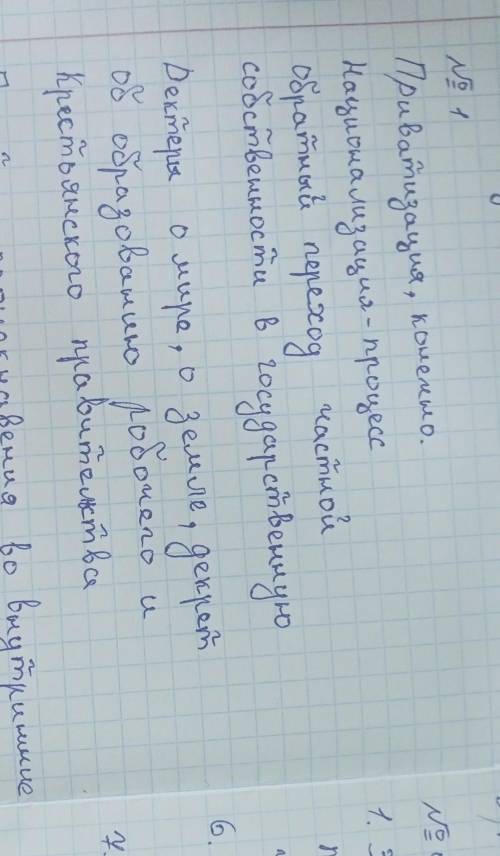 № 1
Приватизация, конечно.
Национализация - процесс
обратный переход частной
собственности в государственную
Дектеры о мире, о земле, декрет
об образованию рабочего и
Крестьянского правителктва
проникновения во внутринние
№
1.
6.
7.